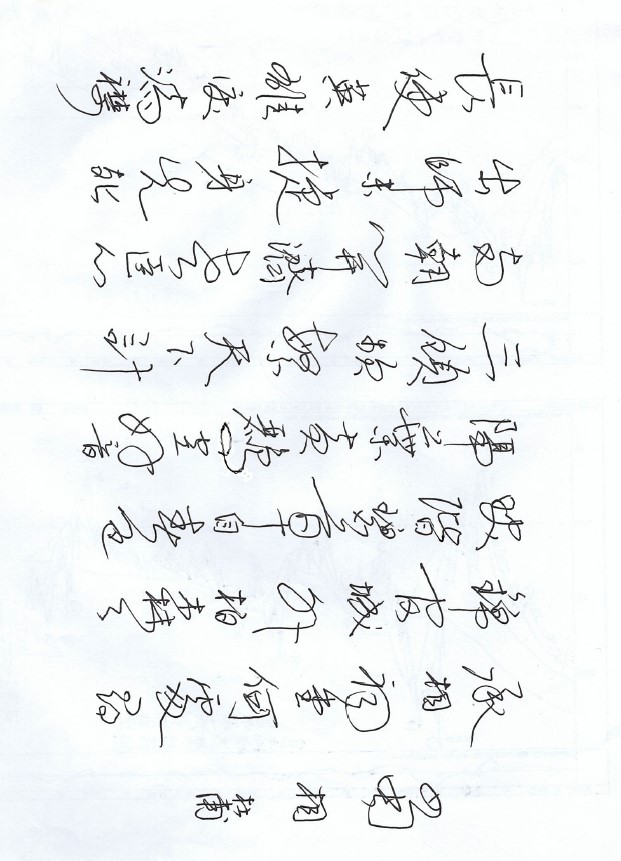 蜀相 杜甫
承相祠堂何處尋
錦官城外柏森々
映階碧草自春色
隔葉黃鸝空好音
三顧頻繁天下計
兩朝開濟老臣心
出師未捷身先死
長使英雄淚滿襟